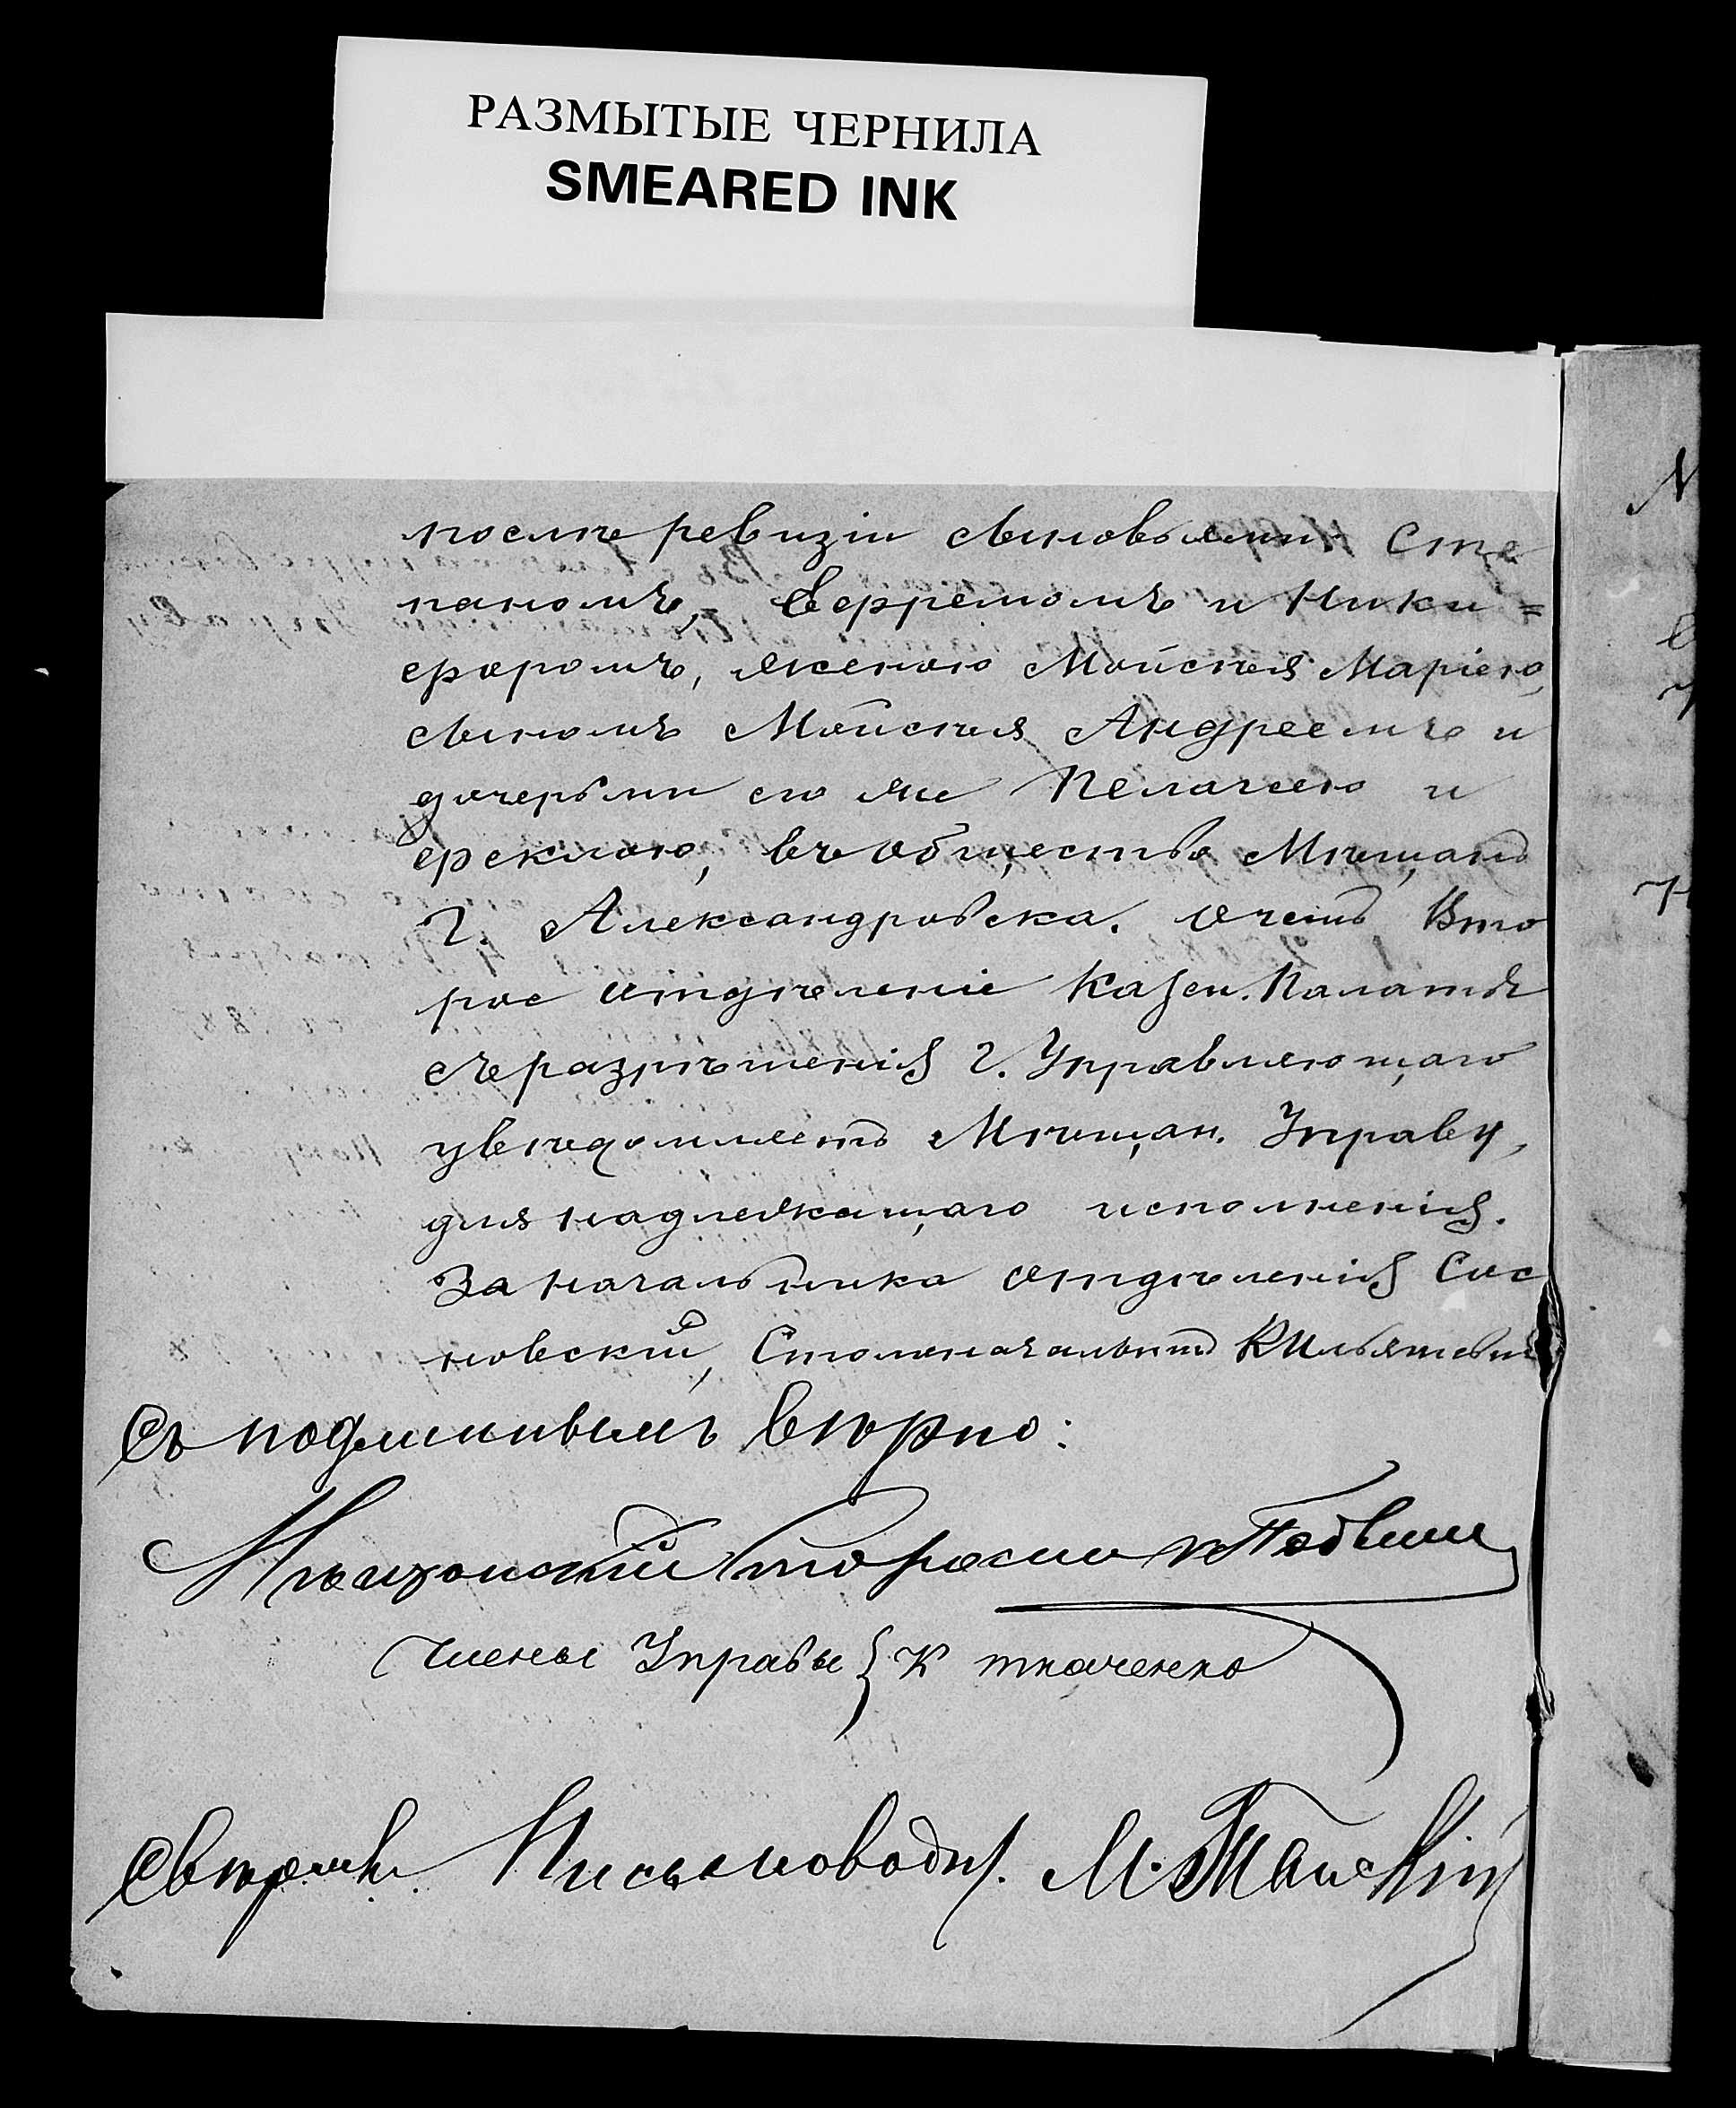 РАЗМЫТЫЕ ЧЕРНИЛА
SMEARED INK
послѣ ревизіи сыновьями Сте
паномъ, Ефремомъ и Ники=
форомъ, женою Мойсѣя Маріею,
сыномъ Мойсѣя Андреемъ и
дочерьми его же Пелагеею и
Феклою, въ общество Мѣщанъ
г. Александровска. О чемъ Вто
рое отдѣленіе Казен. Палаты
съ разрѣшенія г. Управляющаго
увѣдомляетъ Мѣщан. Управу,
для надлежащаго исполненія.
За начальника отдѣленія Сос
новскій, Столоначальникъ
Съ подлиннымъ вѣрно:
Мѣщанскій Староста
Члены Управы } К Ткаченко
Свѣрялъ Письмовод. М.